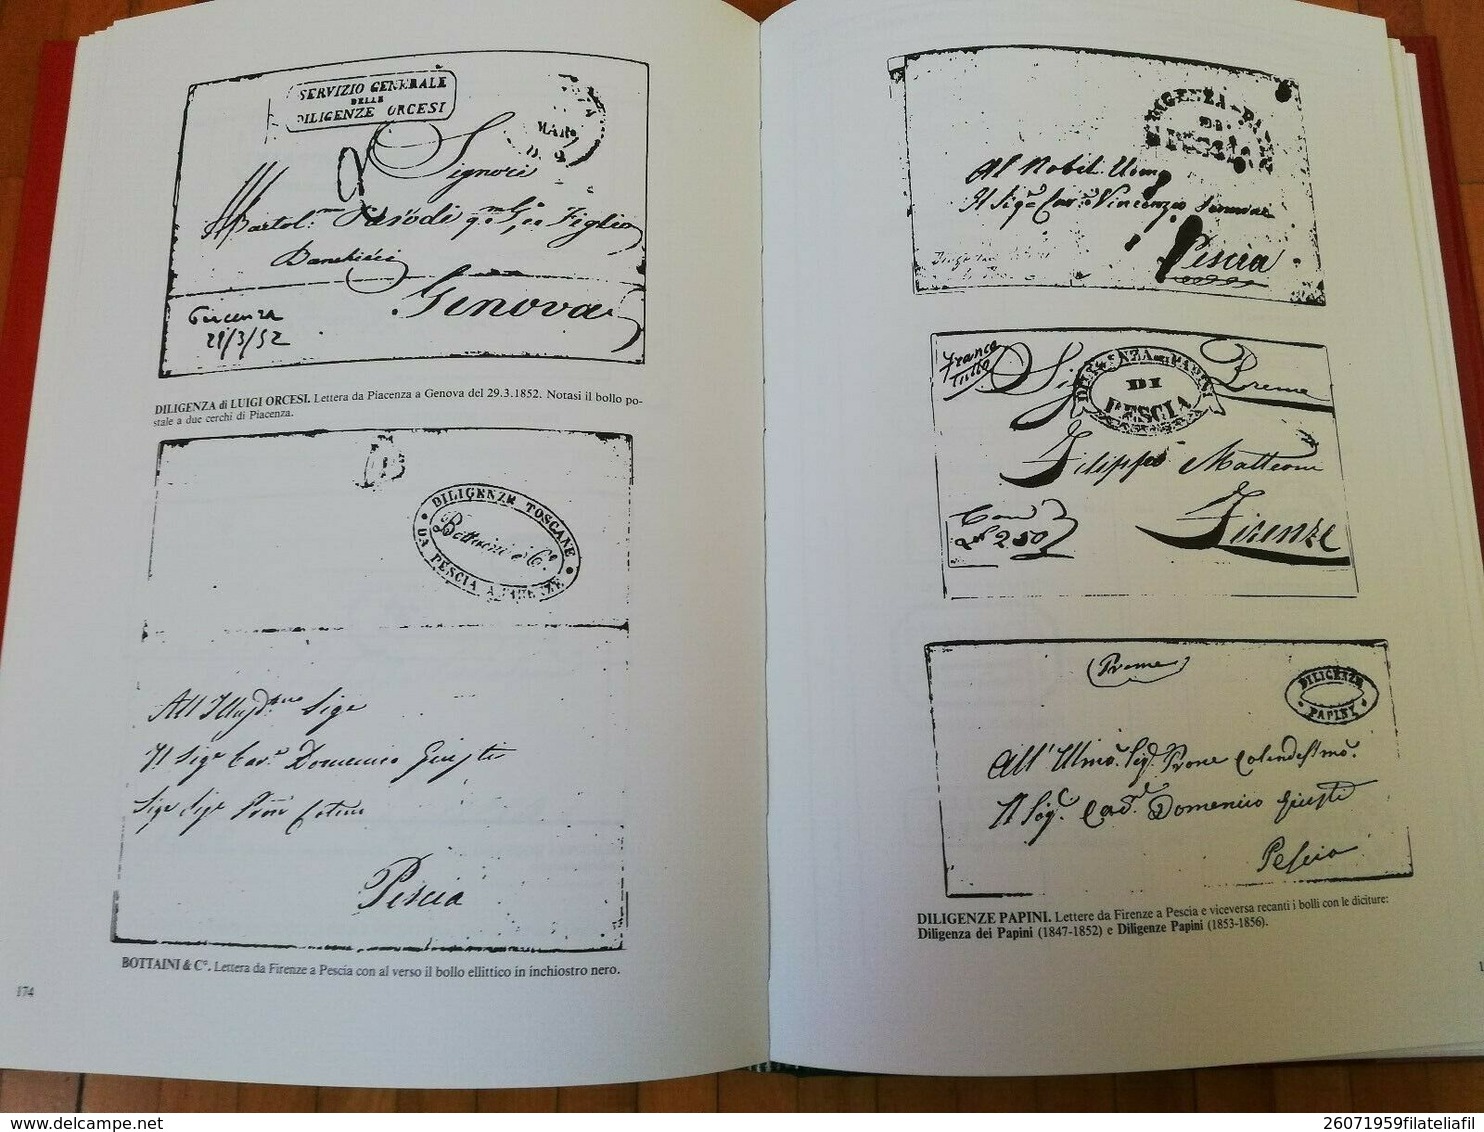 SERVIZIO GENERALE
DELLE
DILIGENZE ORCESI
MAR
Signori
Parodi
Figlio
Genova
29/3/52
DILIGENZA di LUIGI ORCESI. Lettera da Piacenza a Genova del 29.3.1852. Notasi il bollo po-
stale a due cerchi di Piacenza.
DILIGENZE TOSCANE
Bottaini & C°.
DA PESCIA A FIRENZE
Il Sigr Cavr. Domenico Giusti
Pescia
BOTTAINI & C°. Lettera da Firenze a Pescia con al verso il bollo ellittico in inchiostro nero.
174
DI
PESCIA
Al Nobil Uomo
Il Sigr Cavre Vincenzo
Pescia
Franca
tutto
DILIGENZA DEI PAPINI
DI
PESCIA
Filippo Matteoni
250
Firenze
Preme
DILIGENZE
PAPINI
Domenico Giusti
Pescia
DILIGENZE PAPINI. Lettere da Firenze a Pescia e viceversa recanti i bolli con le diciture:
Diligenza dei Papini (1847-1852) e Diligenze Papini (1853-1856).
delcampe.net
26071959filateliafil